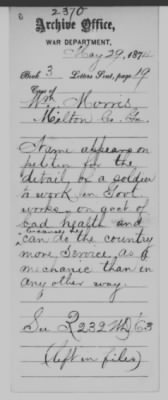 2370
Archive Office,
WAR DEPARTMENT,
May 29, 1874
Book 3 Letters Sent, page 19
Copy of
Wm Morris,
Milton Co. Ga.
Name appears on
petition for the
detail, of a soldier
to work in Govt
works on acct of
bad health and
because he
can do the country
more service, as a
mechanic than in
any other way.
See R 232 WD 63
(left in files)